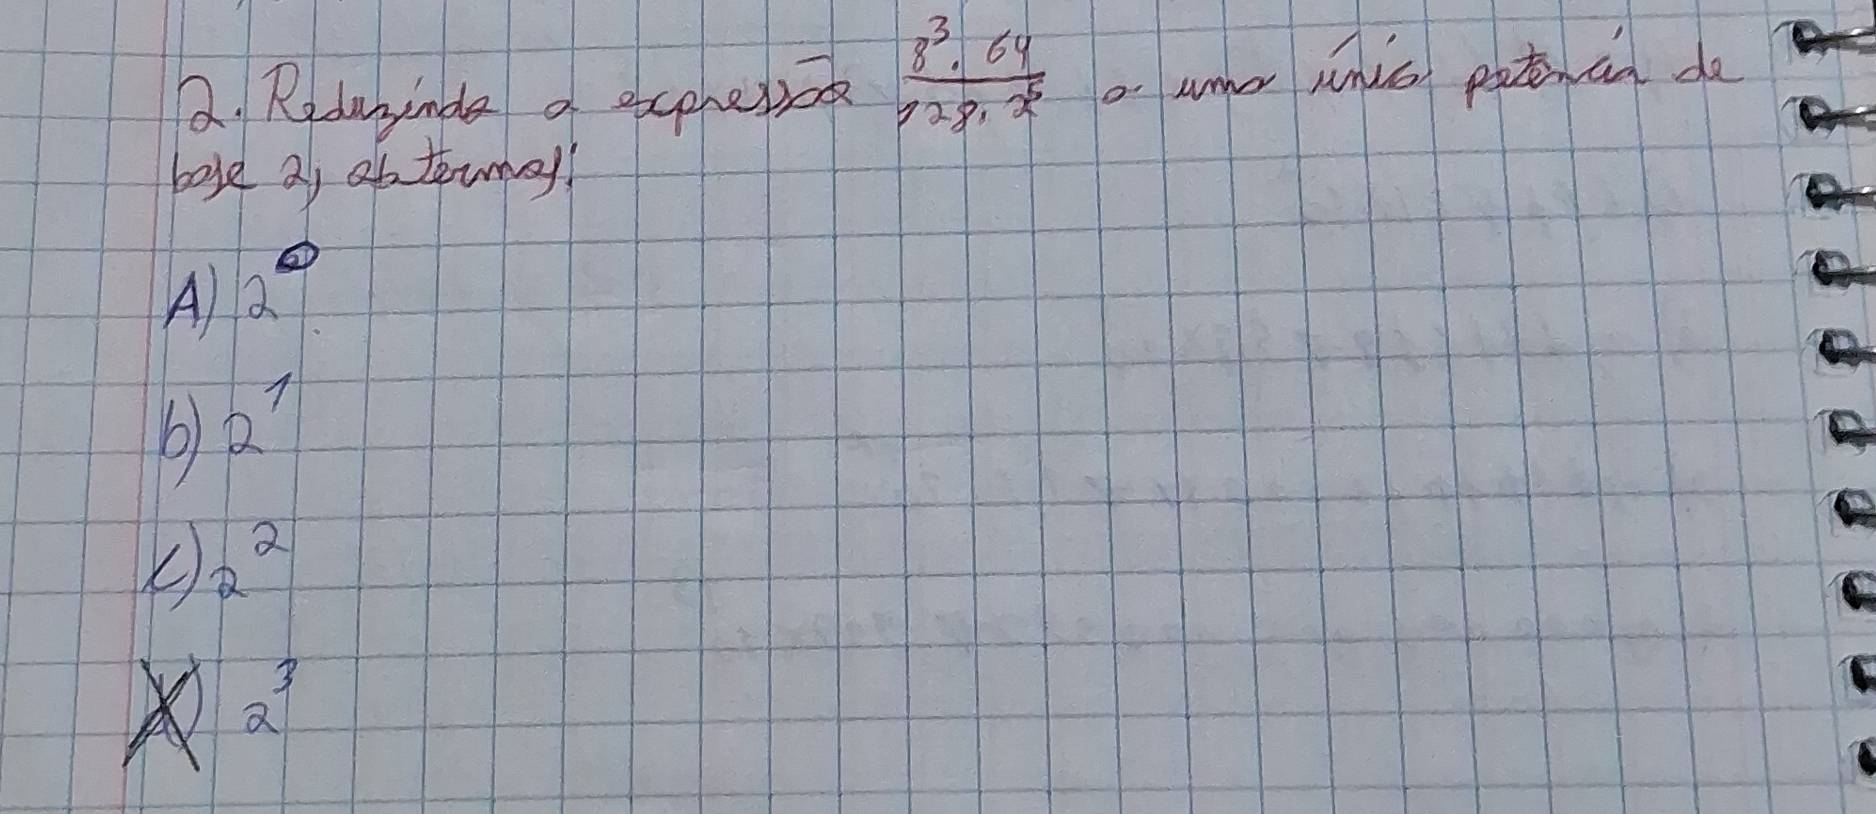 2. Reduzindo a expressão 8³. 64 / 128. 2⁵ a uma única potência de
base 2, obtemos:
A) 2⁰
b) 2¹
c) 2²
d) 2³